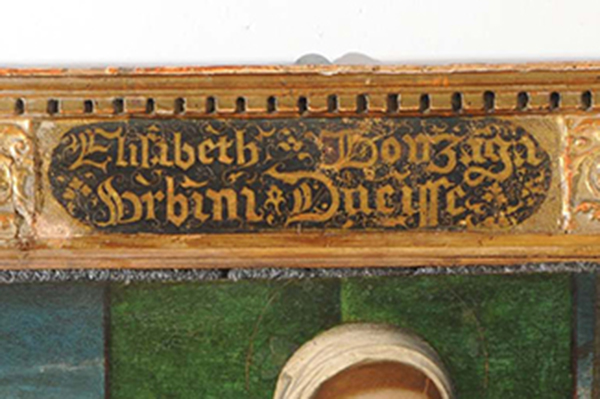 Elisabeth Gonzaga
Urbini Ducisse